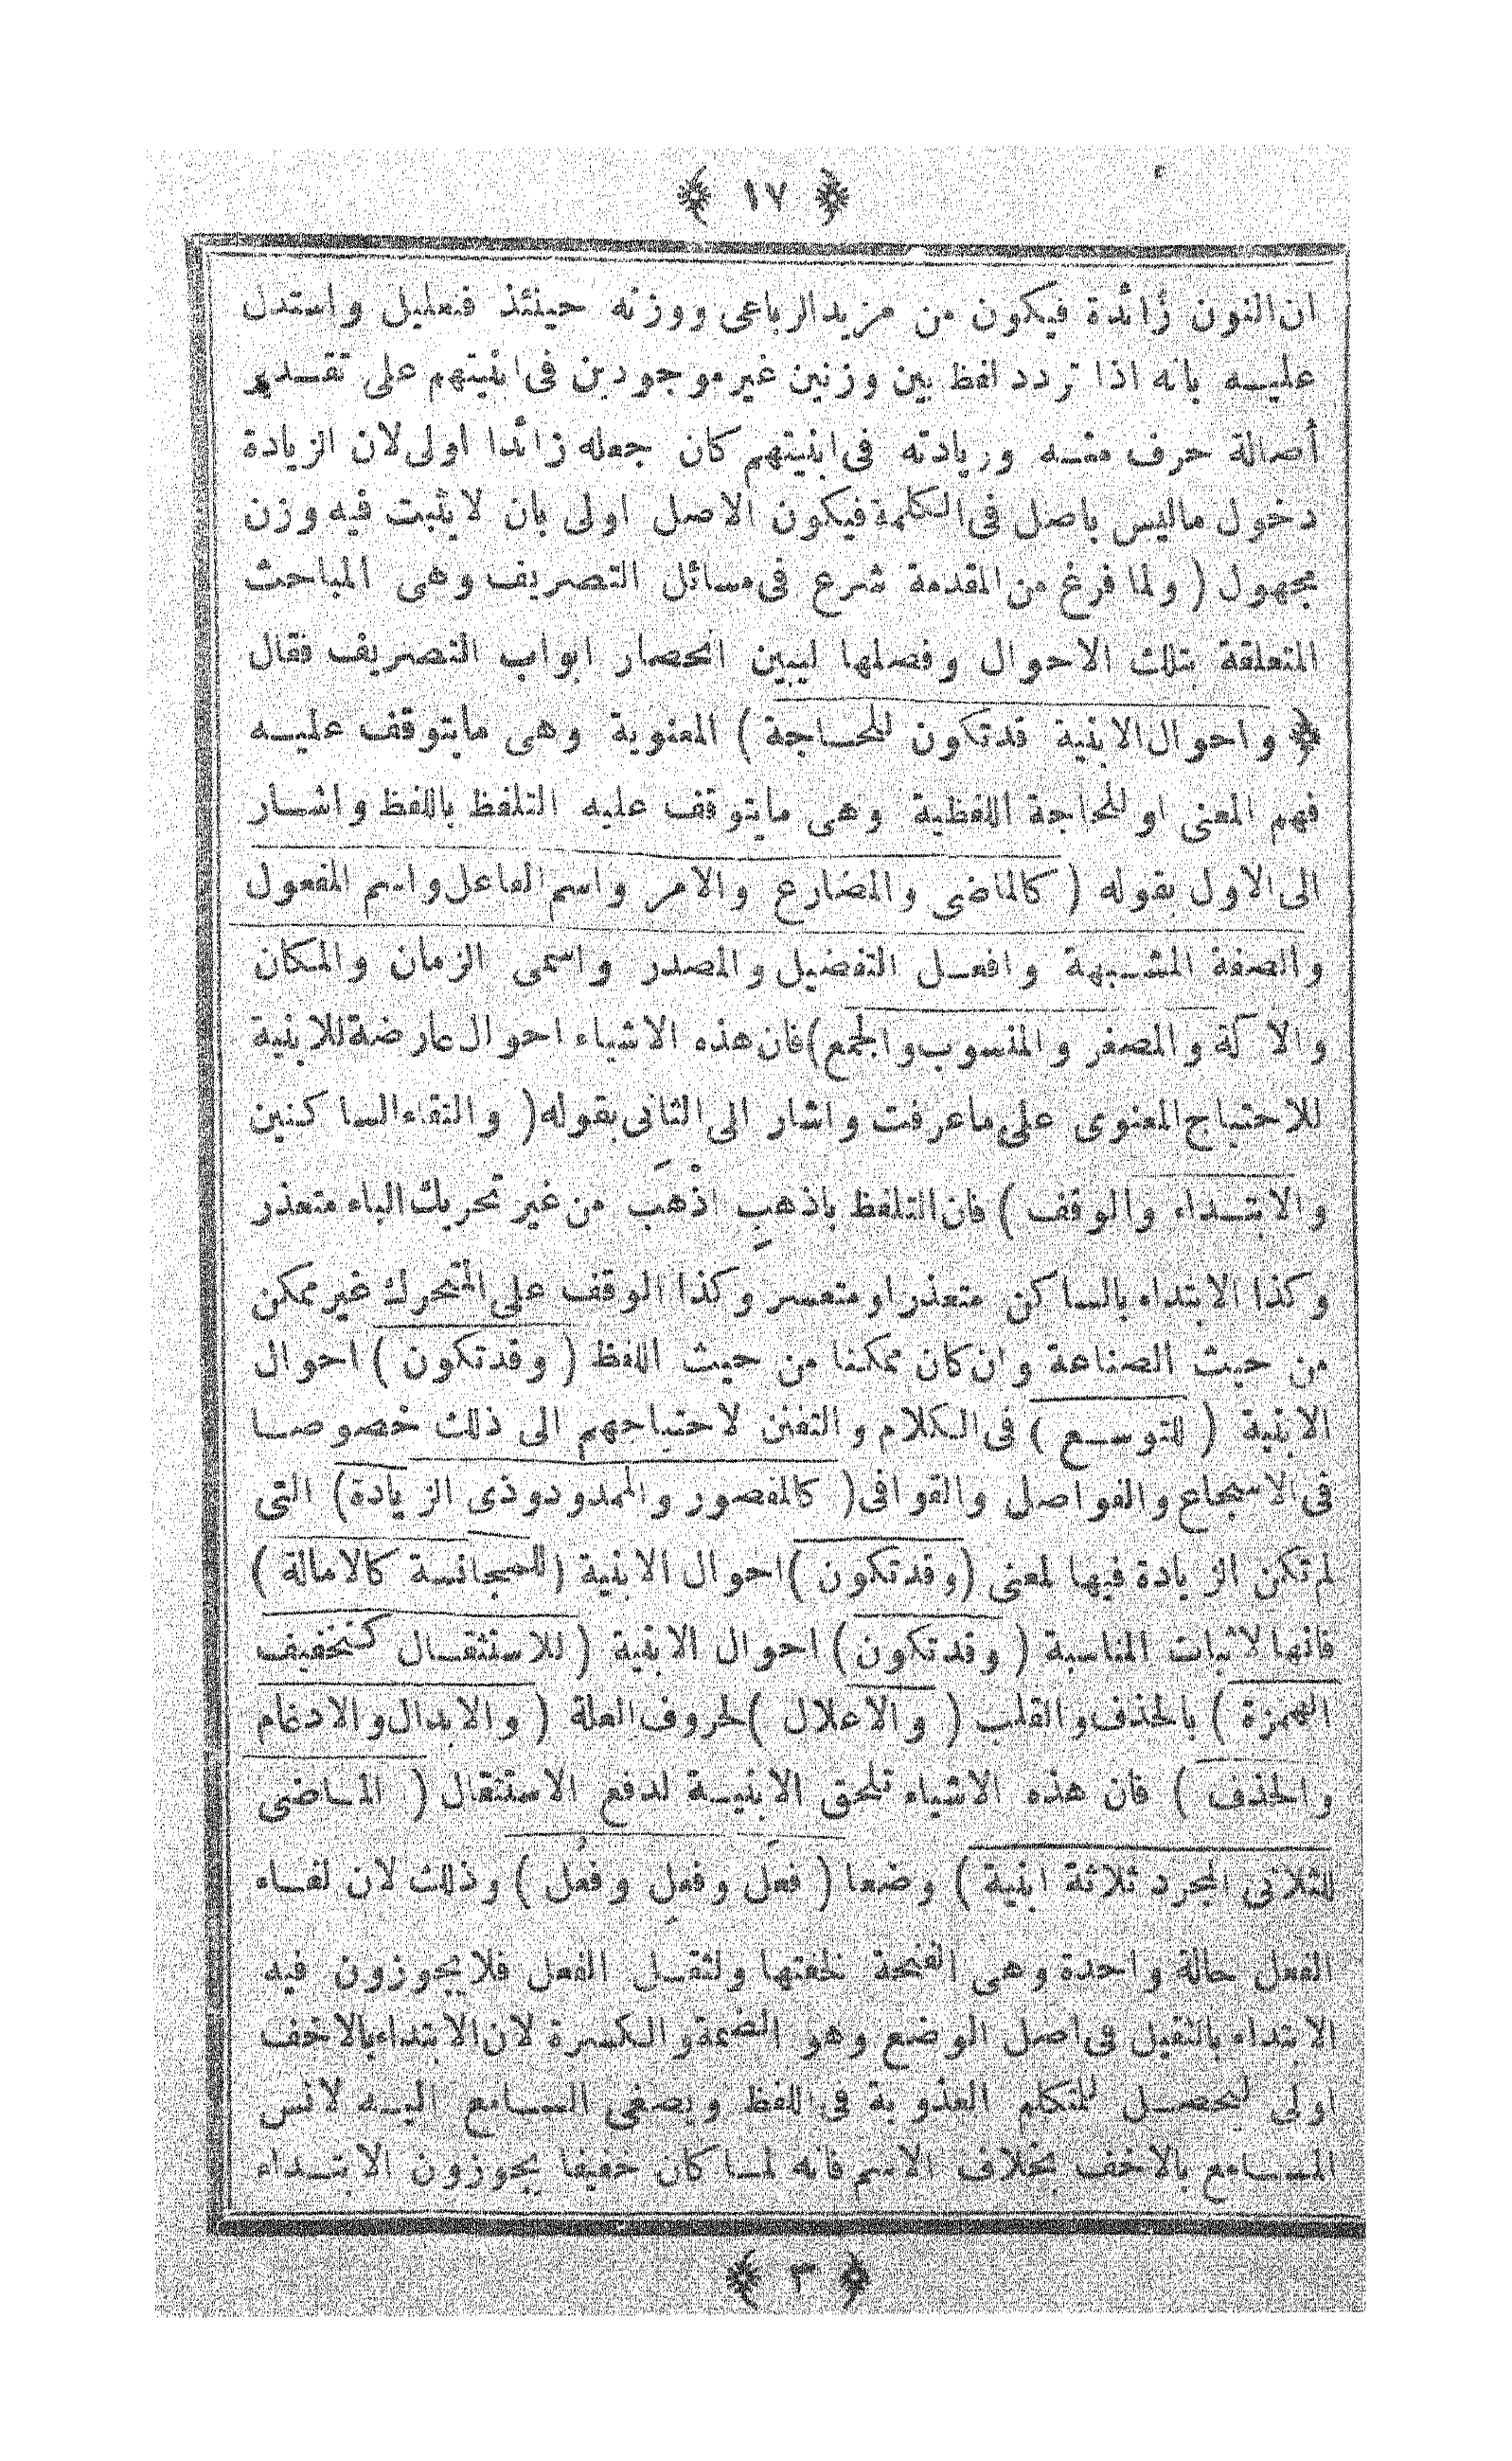 ﴿ ١٧ ﴾
ان النون زائدة فيكون من مزيد الرباعى ووزنه حينئذ فعليل واستدل
عليه بانه اذا تردد لفظ بين وزنين غير موجودين فى ابنيتهم على تقدير
أصالة حرف منه وزيادته فى ابنيتهم كان جعله زائدا اولى لان الزيادة
دخول ماليس باصل فى الكلمة فيكون الاصل اولى بان لا يثبت فيه وزن
مجهول ( ولما فرغ من المقدمة شرع فى مسائل التصريف وهى المباحث
المتعلقة بتلك الاحوال وفصلها ليبين انحصار ابواب التصريف فقال
﴿ واحوال الابنية قد تكون للحاجة ) المعنوية وهى ما يتوقف عليه
فهم المعنى او للحاجة اللفظية وهى ما يتوقف عليه التلفظ باللفظ واشار
الى الاول بقوله ( كالماضى والمضارع والامر واسم الفاعل واسم المفعول
والصفة المشبهة وافعل التفضيل والمصدر واسمى الزمان والمكان
والا كة والمصغر والمنسوب والجمع) فان هذه الاشياء احوال عارضة للابنية
للاحتياج المعنوى على ما عرفت واشار الى الثانى بقوله ( والتقاء الساكنين
والابتداء والوقف ) فان التلفظ باذهبِ اذْهَب من غير تحريك الباء متعذر
وكذا الابتداء بالساكن متعذر او متعسر وكذا الوقف على المتحرك غير ممكن
من حيث الصناعة وان كان ممكنا من حيث اللفظ ( وقد تكون ) احوال
الابنية ( للتوسع ) فى الكلام والتفنن لاحتياجهم الى ذلك خصوصا
فى الاسجاع والفواصل والقوافى ( كالمقصور والممدود وذى الزيادة) التى
لم تكن الزيادة فيها لمعنى (وقد تكون ) احوال الابنية (للمجانسة كالامالة )
فانها لاثبات المناسبة ( وقد تكون) احوال الابنية ( للاستثقال كتخفيف
الهمزة ) بالحذف والقلب ( والاعلال ) لحروف العلة ( والابدال والادغام
والحذف ) فان هذه الاشياء تلحق الابنية لدفع الاستثقال ( الماضى
للثلاثى المجرد ثلاثة ابنية ) وضعا ( فعَل وفعِل وفعُل ) وذلك لان لفاء
الفعل حالة واحدة وهى الفتحة لخفتها ولثقل الفعل فلا يجوزون فيه
الابتداء بالثقيل فى اصل الوضع وهو الضمة والكسرة لان الابتداء بالاخف
اولى ليحصل للمتكلم العذوبة فى اللفظ ويصغى السامع اليه لانس
السامع بالاخف بخلاف الاسم فانه لما كان خفيفا يجوزون الابتداء
﴿ ٣ ﴾